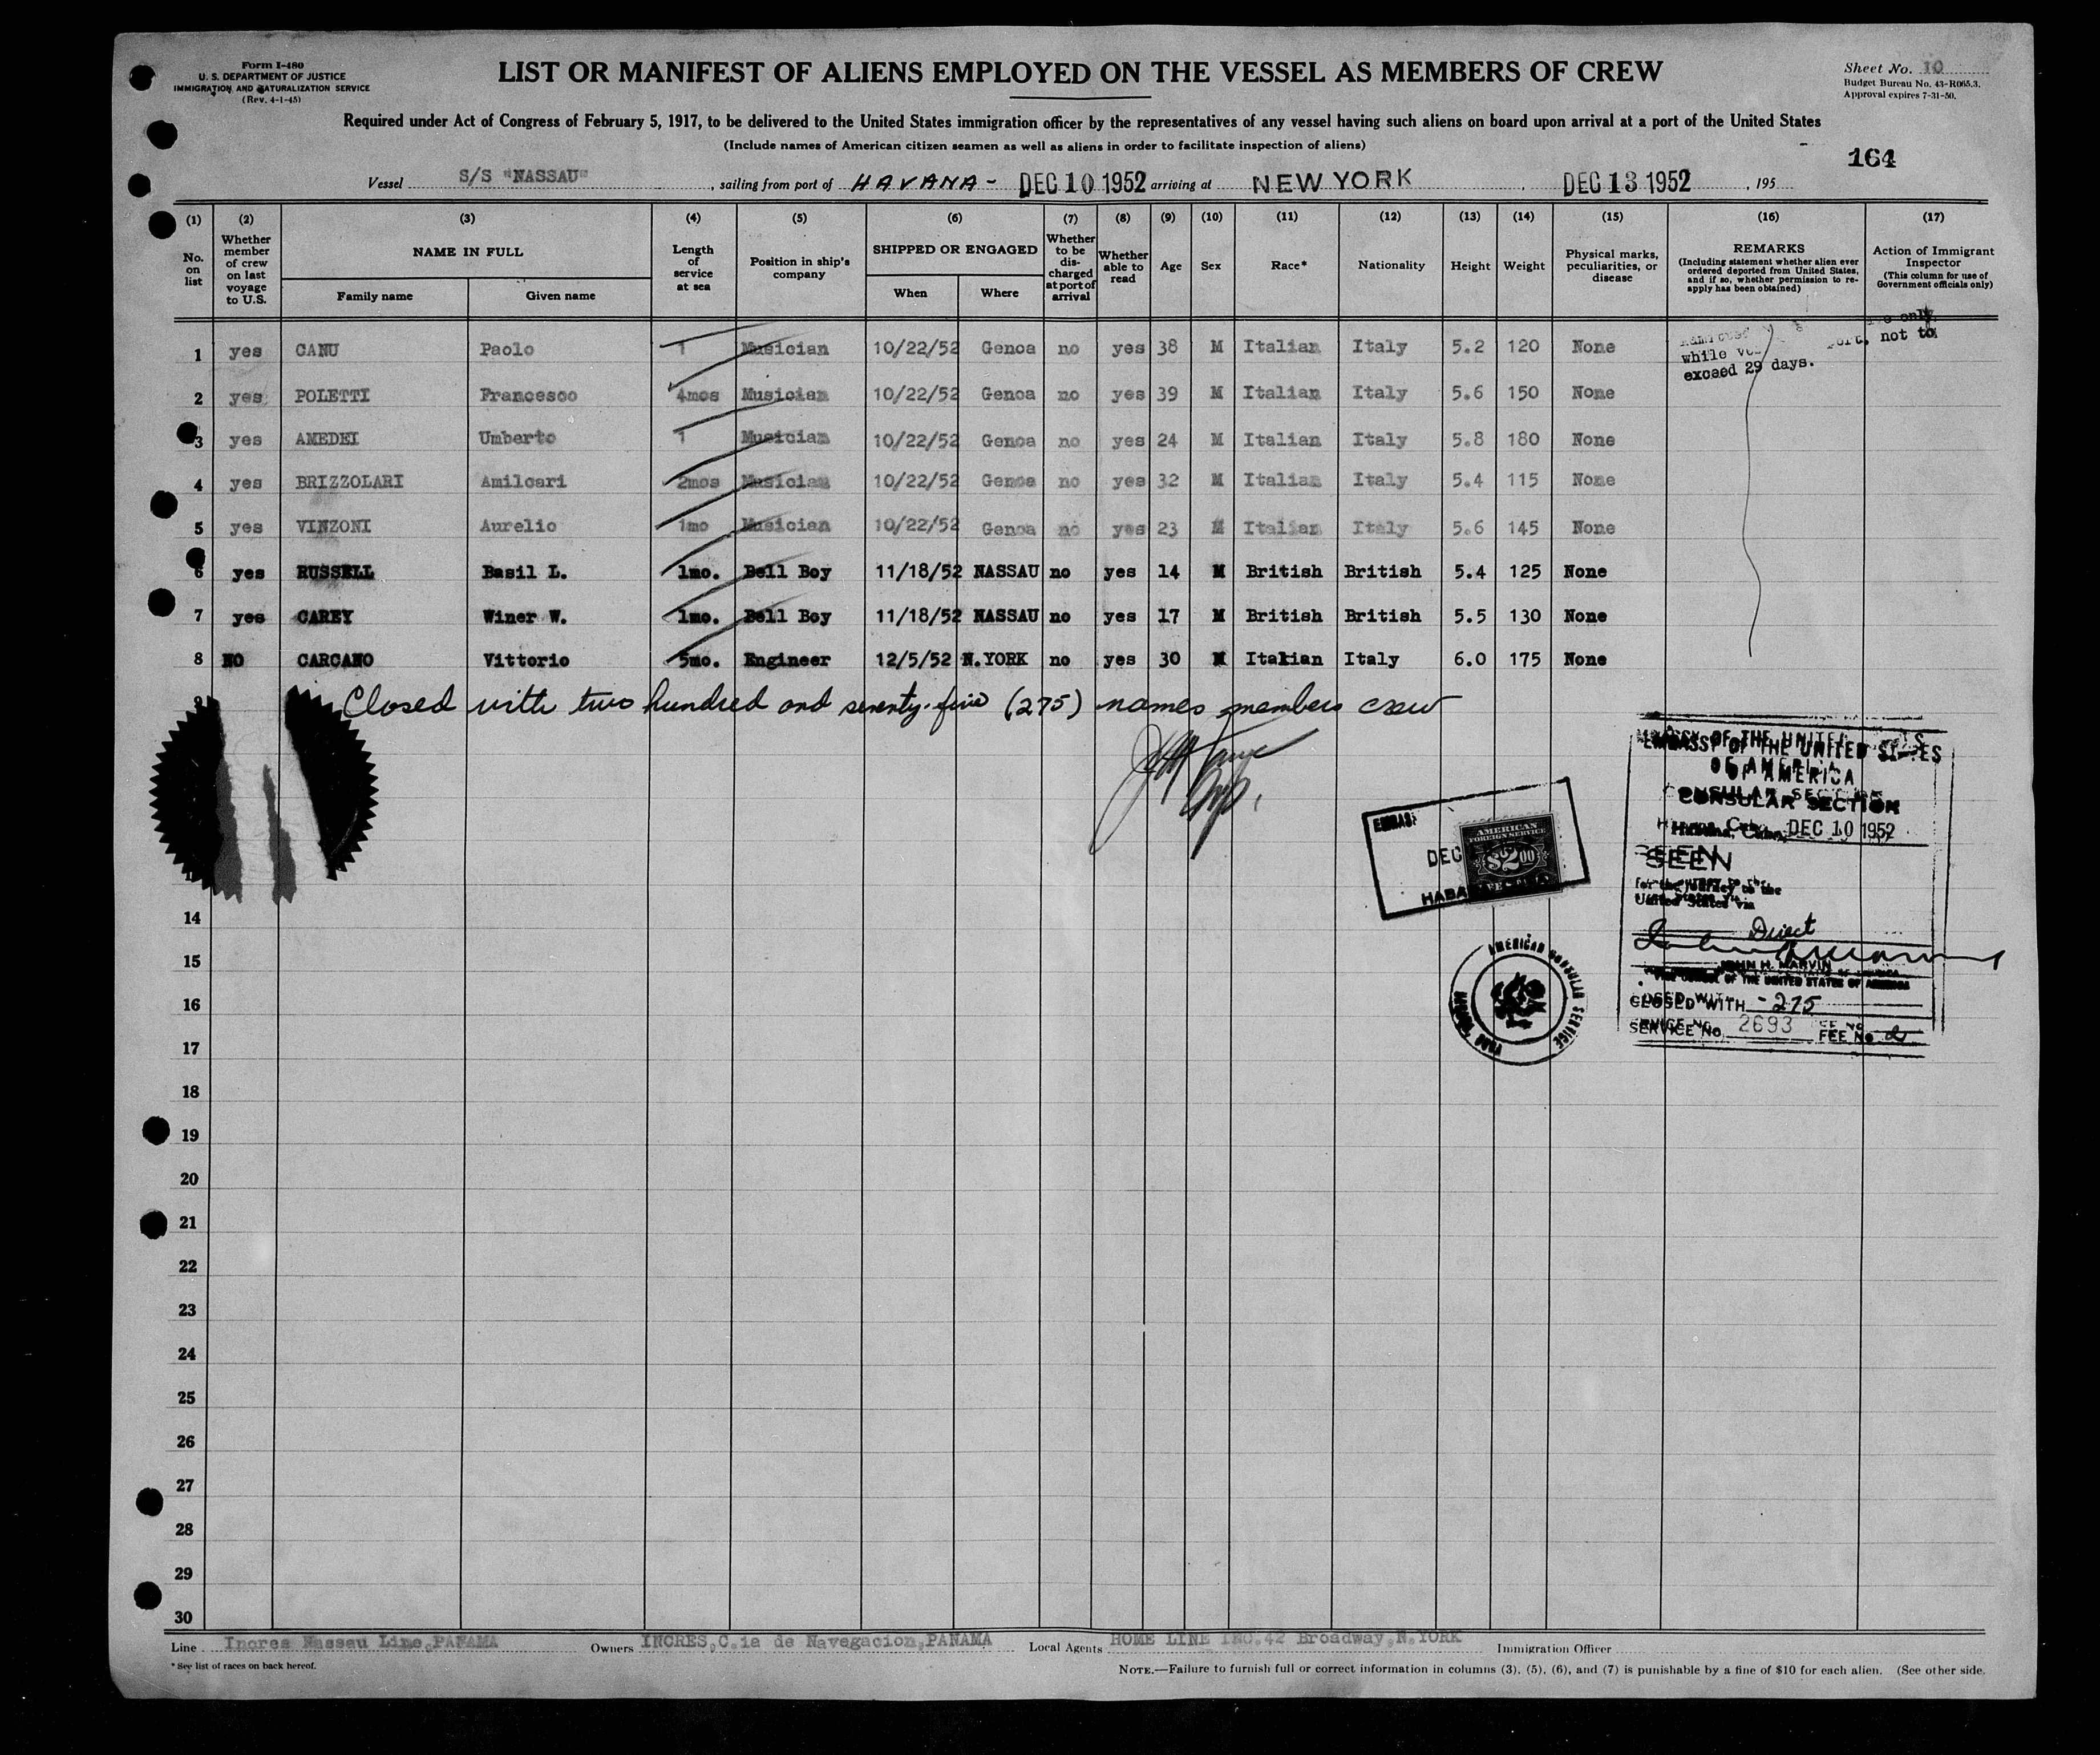 Form I-480
U. S. DEPARTMENT OF JUSTICE
IMMIGRATION AND NATURALIZATION SERVICE
(Rev. 4-1-45)
LIST OR MANIFEST OF ALIENS EMPLOYED ON THE VESSEL AS MEMBERS OF CREW
Sheet No. 10
Budget Bureau No. 43-R065.3.
Approval expires 7-31-50.
Required under Act of Congress of February 5, 1917, to be delivered to the United States immigration officer by the representatives of any vessel having such aliens on board upon arrival at a port of the United States
(Include names of American citizen seamen as well as aliens in order to facilitate inspection of aliens)
164
Vessel S/S "NASSAU", sailing from port of HAVANA- DEC 10 1952 arriving at NEW YORK, DEC 13 1952, 195
(1) (2) (3) (4) (5) (6) (7) (8) (9) (10) (11) (12) (13) (14) (15) (16) (17)
No. on list
Whether member of crew on last voyage to U.S.
NAME IN FULL
Family name
Given name
Length of service at sea
Position in ship's company
SHIPPED OR ENGAGED
When
Where
Whether to be discharged at port of arrival
Whether able to read
Age
Sex
Race*
Nationality
Height
Weight
Physical marks, peculiarities, or disease
REMARKS
(Including statement whether alien ever ordered deported from United States, and if so, whether permission to re-apply has been obtained)
Action of Immigrant Inspector
(This column for use of Government officials only)
1 yes CANU Paolo 1 Musician 10/22/52 Genoa no yes 38 M Italian Italy 5.2 120 None
only
while not to
exceed 29 days.
2 yes POLETTI Francesco 4mos Musician 10/22/52 Genoa no yes 39 M Italian Italy 5.6 150 None
3 yes AMEDEI Umberto 1 Musician 10/22/52 Genoa no yes 24 M Italian Italy 5.8 180 None
4 yes BRIZZOLARI Amilcari 2mos Musician 10/22/52 Genoa no yes 32 M Italian Italy 5.4 115 None
5 yes VINZONI Aurelio 1mo Musician 10/22/52 Genoa no yes 23 M Italian Italy 5.6 145 None
6 yes RUSSELL Basil L. 1mo. Bell Boy 11/18/52 NASSAU no yes 14 M British British 5.4 125 None
7 yes CAREY Winer W. 1mo. Bell Boy 11/18/52 NASSAU no yes 17 M British British 5.5 130 None
8 NO CARCANO Vittorio 5mo. Engineer 12/5/52 N.YORK no yes 30 M Italian Italy 6.0 175 None
9
Closed with two hundred and seventy-five (275) names members crew
EMBASSY OF THE UNITED STATES
OF AMERICA
CONSULAR SECTION
Habana, Cuba, DEC 10 1952
SEEN
for the journey to the
United States via
Direct
JOHN H. MARVIN
OF THE UNITED STATES OF AMERICA
CLOSED WITH - 275
SERVICE No. 2693 FEE No 2
DEC
HABA
AMERICAN
FOREIGN SERVICE
$2.00
AMERICAN CONSULAR SERVICE
14
15
16
17
18
19
20
21
22
23
24
25
26
27
28
29
30
Line Incres Nassau Line, PANAMA Owners INCRES, C.ia de Navegacion, PANAMA Local Agents HOME LINE INC. 42 Broadway, N.YORK Immigration Officer
*See list of races on back hereof.
NOTE.—Failure to furnish full or correct information in columns (3), (5), (6), and (7) is punishable by a fine of $10 for each alien. (See other side.